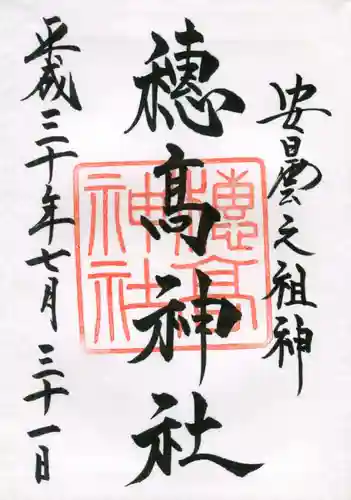 安曇之祖神
穂髙神社
平成三十年七月三十一日
穂髙神社